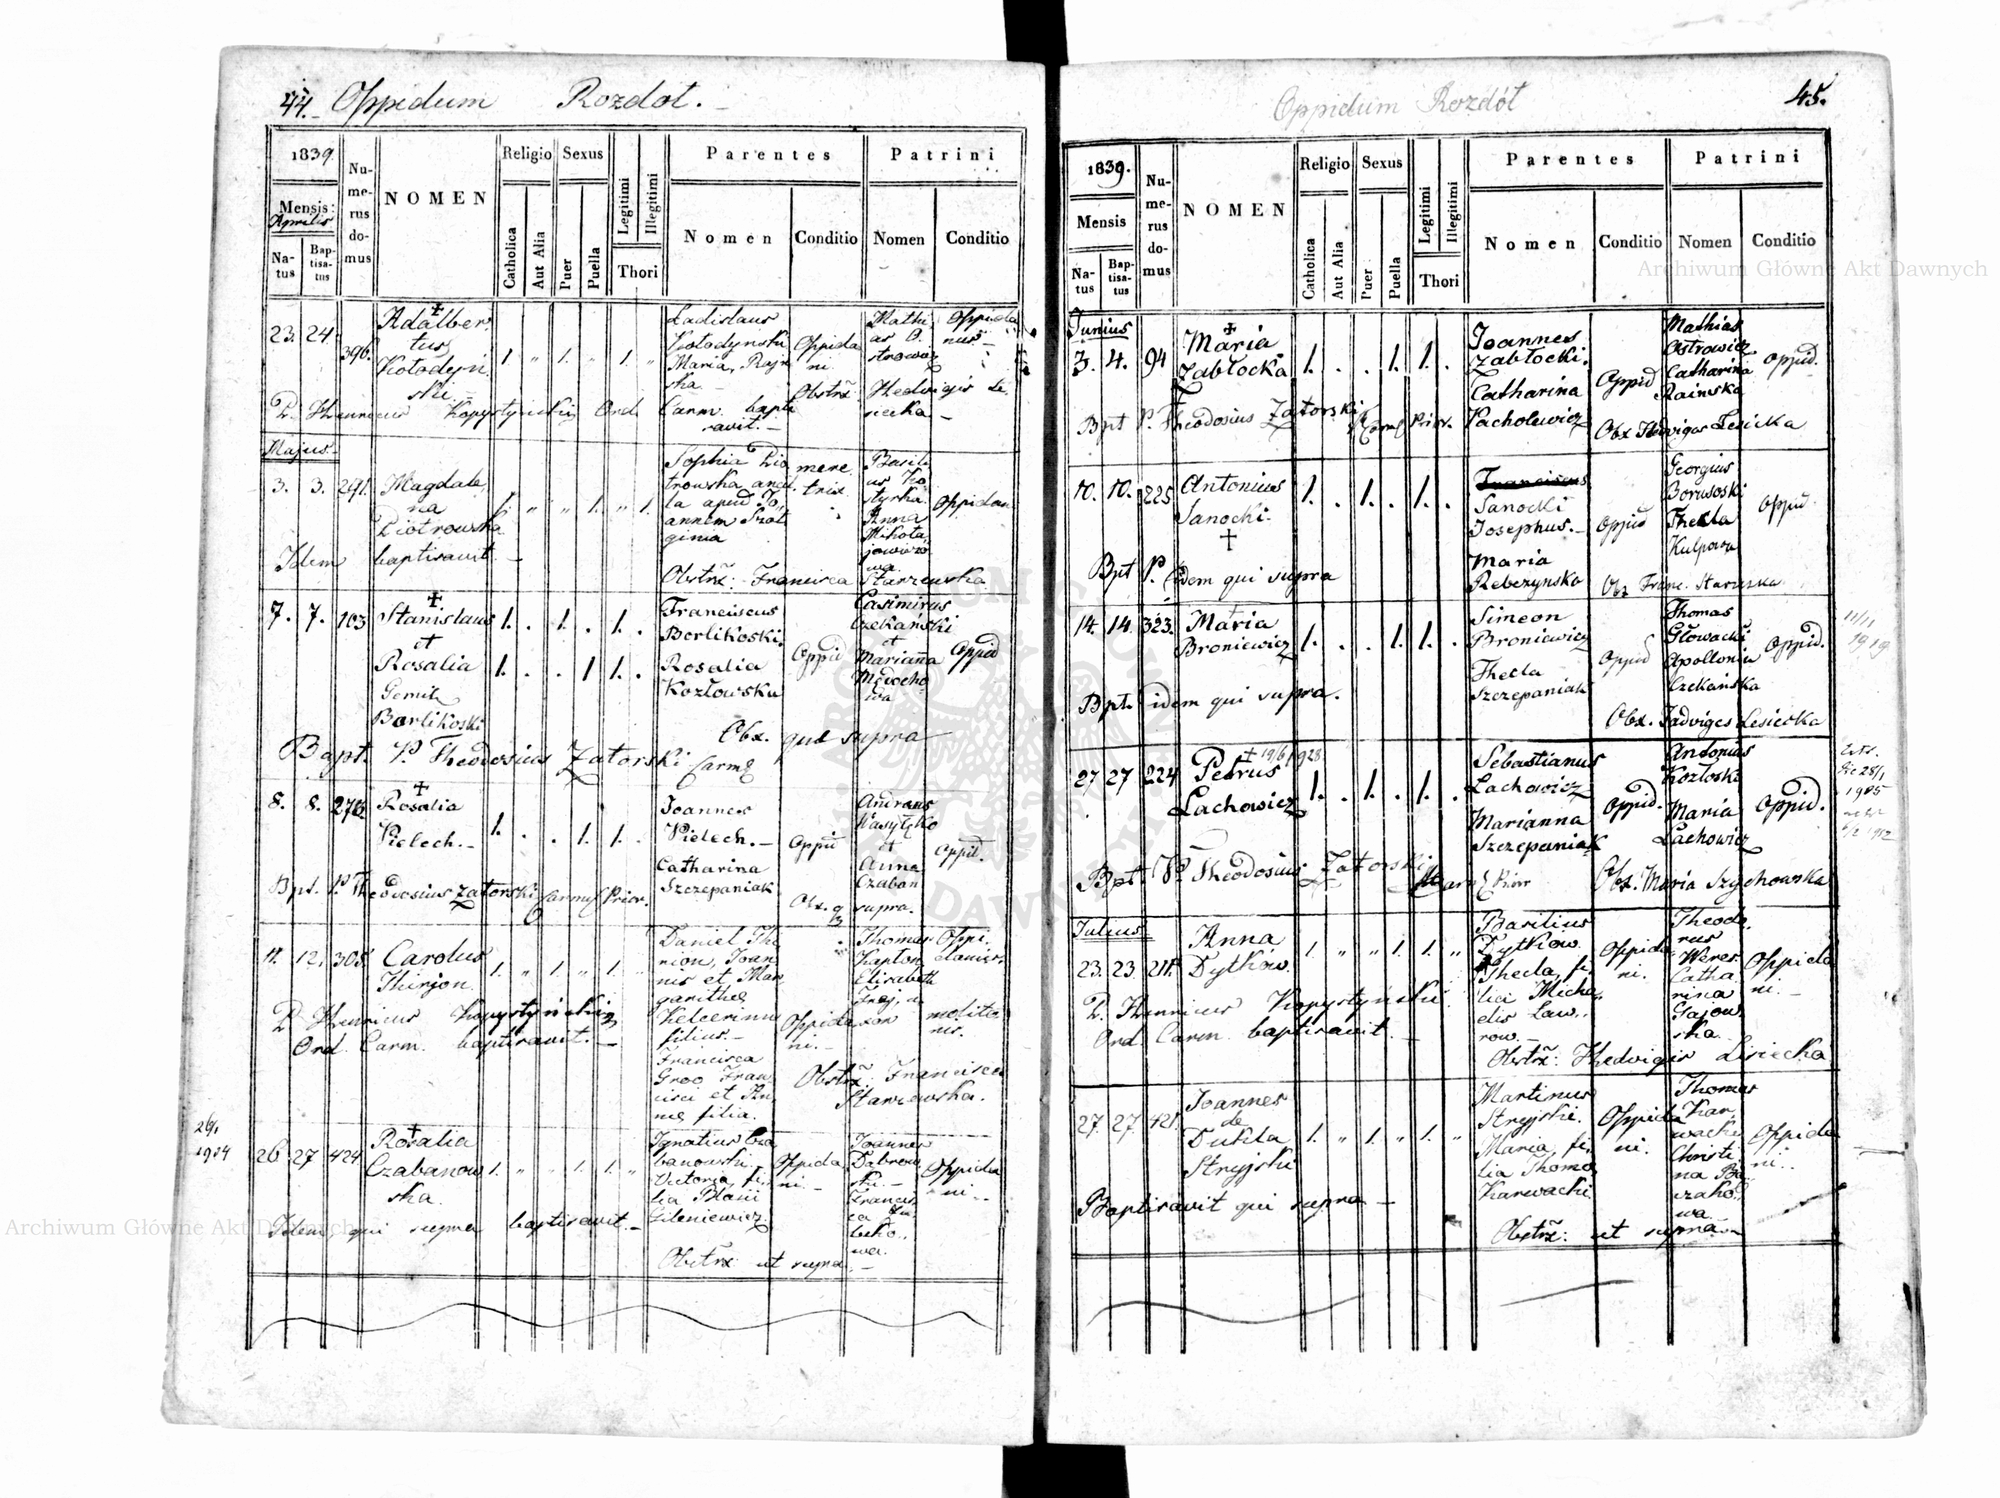 44. Oppidum Rozdoł.
1839.
Mensis:
Aprilis
Natus
Baptisatus
Numerus domus
NOMEN
Religio
Catholica
Aut Alia
Sexus
Puer
Puella
Legitimi
Illegitimi
Thori
Parentes
Nomen
Conditio
Patrini
Nomen
Conditio
23. 24. 396.
Adalber
tus
Kołodyń
ski
1. „ 1. „ 1. „
Ladislaus
Kołodynski
Maria
Oppida
ni.
Mathi
as O.
strowicz
Oppida
nus
Obstrx: Hedvigis Le
siecka
P. Henricus Kopystyński Ord. Carm. bapti
ravit.
Majus.
3. 3. 291.
Magdale
na
Piotrowska
1. „ „ 1. „ 1.
Sophia Pio
trowska ancil
la apud Jo
annem
mere
trix
Basili
us Ko
styrka
Anna
Mikoła
jowiczo
wa.
Oppidani
Idem baptisavit.
Obstrx: Francisca Starzewska
7. 7. 103
Stanislaus
et
Rosalia
Gemil
Borlikoski
1. . 1. . 1. .
1. . . 1 1. .
Franciscus
Borlikoski
Rosalia
Kozłowska
Oppid
Casimirus
Czekański
et
Marianna
Młocho
wa
Oppid
Obx. que supra
Bapt. P. Theodosius Zatorski Carm
8. 8. 276
Rosalia
Pielech.
1. . . 1. 1. .
Joannes
Pielech.
Catharina
Szczepaniak
Oppid
Andreas
Wasyłko
et
Anna
Czaban
Oppid.
Obx. q supra.
Bpt. P. Theodosius Zatorski Carm Prior.
11. 12. 305.
Carolus
Thirjon.
1. „ 1. „ 1. „
Daniel Thi
rion, Joan
nis et Mar
garithe
filius.
Francisca
Groo Fran
cisci et An
ne filia.
Oppida
ni.
Thomas
Kapłon
Elisabeth
molito
ris.
P. Henricus Kopystyński
Ord. Carm. baptisavit.
Obstrx: Francisca
Starzewska.
26/1
1904
26. 27 424
Rosalia
Czabanow
ska.
1. „ „ 1. 1. „
Ignatius Cza
banowski
Victoria, fi
lia Blasii
Gileniewicz
Oppida
ni.
Joannes
Dąbrow
ski
Francis
ca
Oppida
ni.
Idem qui supra baptisavit.
Obstrx ut supra.
Oppidum Rozdół
45.
1839.
Mensis
Natus
Baptisatus
Numerus domus
NOMEN
Religio
Catholica
Aut Alia
Sexus
Puer
Puella
Legitimi
Illegitimi
Thori
Parentes
Nomen
Conditio
Patrini
Nomen
Conditio
Junius
3. 4. 94
Maria
Zabłocka
1. . . 1. 1. .
Joannes
Zabłocki.
Catharina
Pacholewicz
Oppid
Mathias
Ostrowicz
Catharina
Rainska
Oppid.
Bpt P. Theodosius Zatorski Carm Prior.
Obx Hedviges Lesicka
10. 10. 225
Antonius
Sanocki.
1. . 1. . 1. .
Franciscus
Sanocki
Josephus.
Maria
Rebczynska
Oppid
Georgius
Borusoski
Thecla
Kulpowa
Oppid.
Bpt P. idem qui supra
Obx Franc. Starzeska
14. 14. 323.
Maria
Broniewicz
1. . . 1. 1. .
Simeon
Broniewicz
Thecla
Szczepaniak
Oppid
Thomas
Głowacki
Apollonia
Czekańska
Oppid.
11/11
1919
Bpt. idem qui supra.
Obx. Jadviges Lesiecka
27 27 224
19/6 1928
Petrus
Lachowicz
1. . 1. . 1. .
Sebastianus
Lachowicz
Marianna
Szczepaniak
Oppid.
Antonius
Kozłoski
Maria
Lachowicz
Oppid.
28/1
1905
1912
Bpt. P. Theodosius Zatorski Carm Prior
Obx. Maria Szychowska
Julius
23. 23 211.
Anna
Dytków.
1. „ „ 1. 1. „
Basilius
Dytków.
Thecla, fi
lia Micha
elis Law.
row.
Oppida
ni.
Theodo
rus
Weres
Catha
rina
Gajow
ska
Oppida
ni.
P. Henricus Kopystyński
Ord. Carm. baptisavit.
Obstrx: Hedvigis Lisiecka
27. 27 421.
Joannes
de
Dukla
Stryjski
1. „ 1. „ 1. „
Martinus
Stryjski.
Maria, fi
lia Thoma
Karwacki
Oppida
ni.
Thomas
Kar
wacki
Christi
na
Oppida
ni.
Baptisavit qui supra
Obstrx: ut supra
Archiwum Główne Akt Dawnych
Archiwum Główne Akt Dawnych